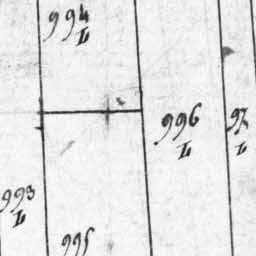 994
L
996
L
97
L
993
L
995